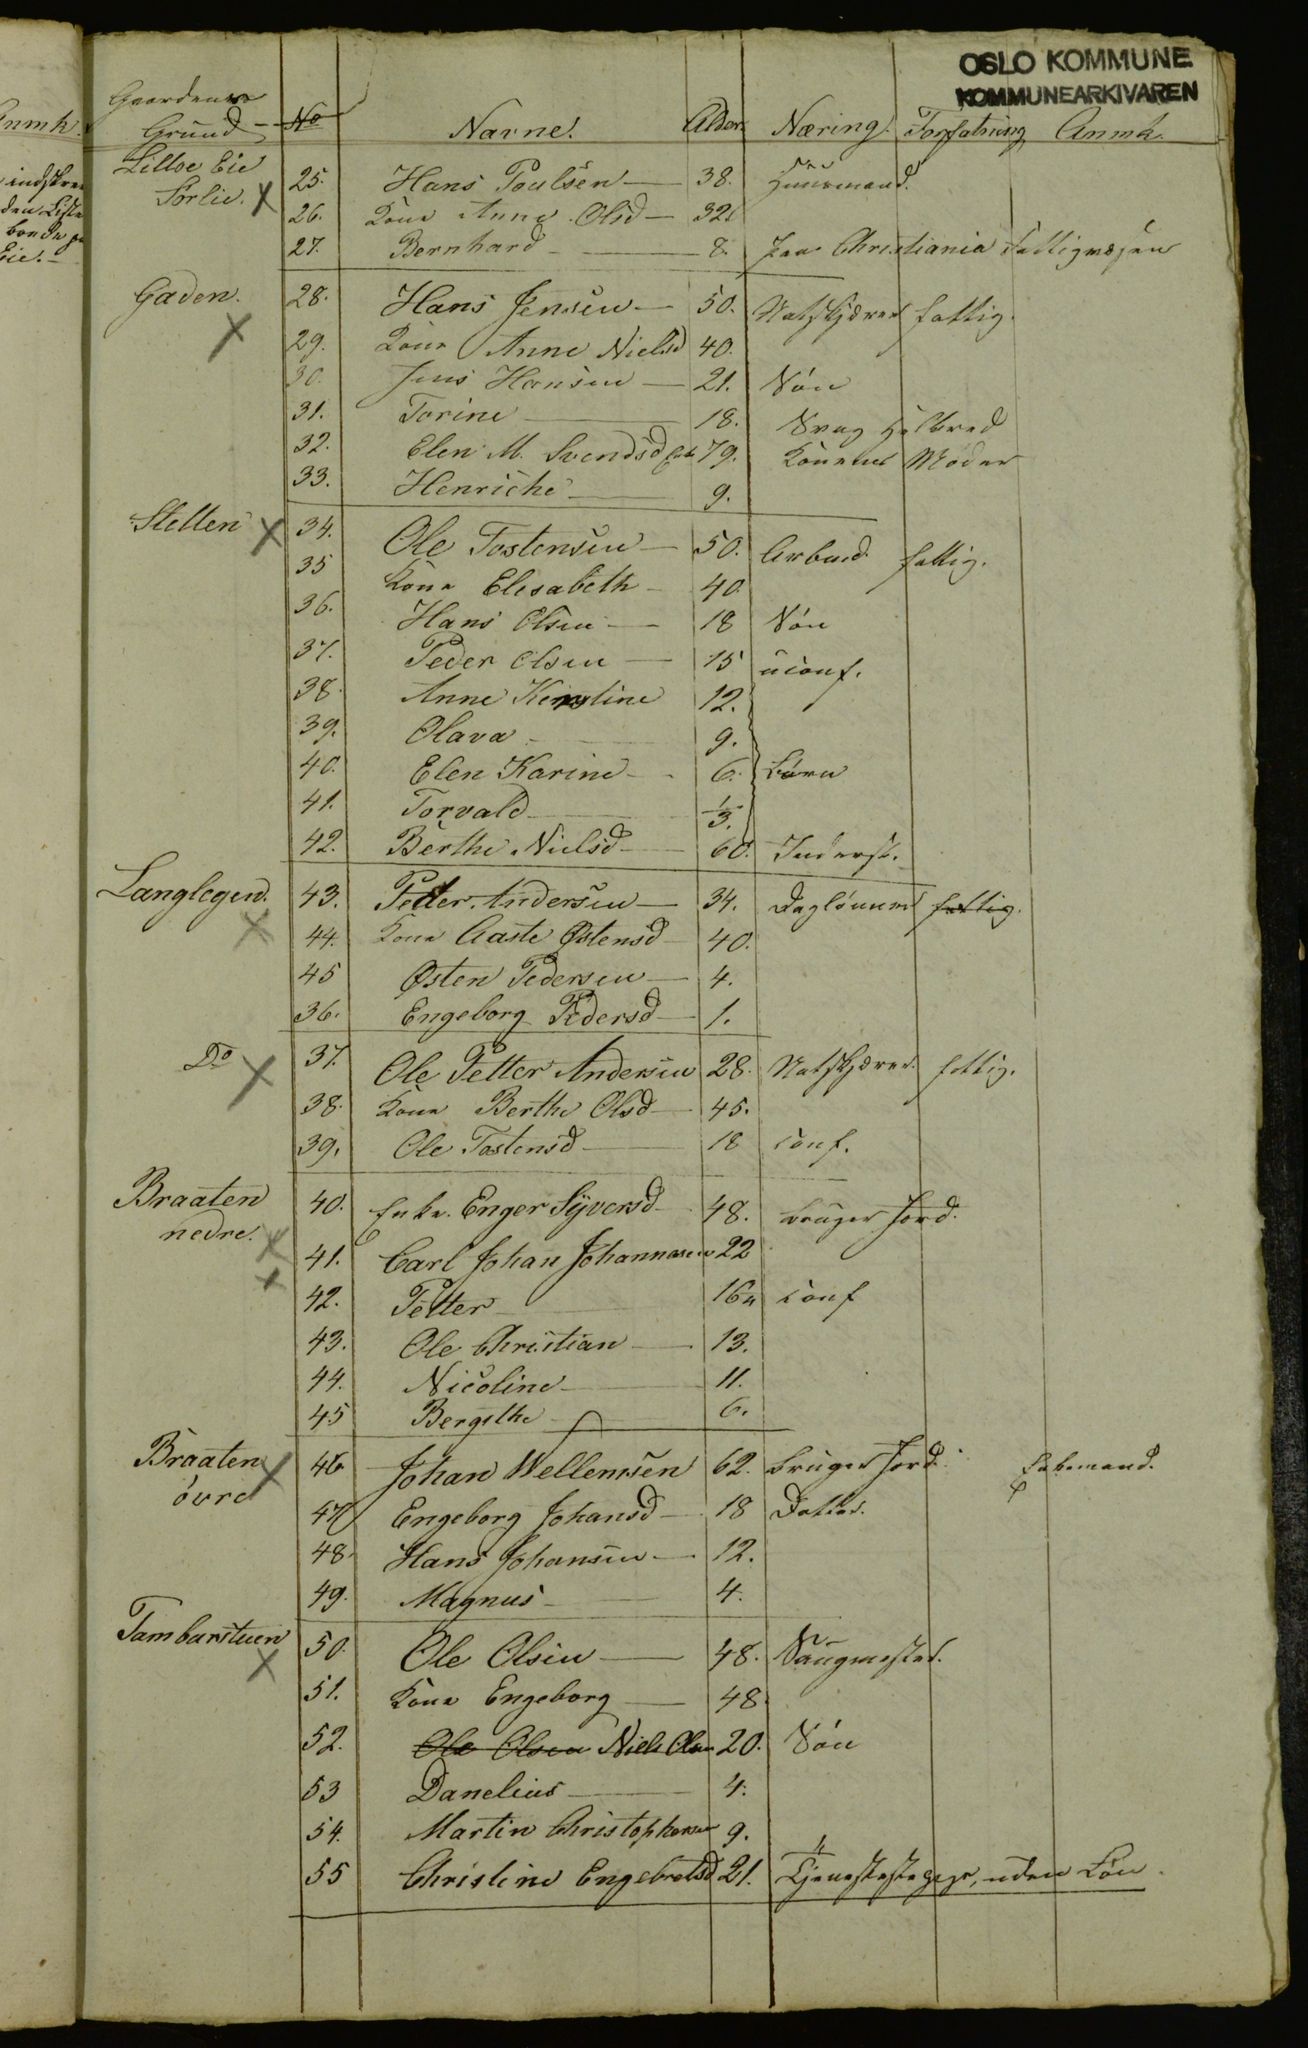 OSLO KOMMUNE
KOMMUNEARKIVAREN
Gaardenes
Grund - No Navne. Alder. Næring. Forfatning Anmk.
Lilloe Eie
Sørlie. X 25. Hans Poulsen — 38. Huusmand.
26. Kone Anne Olsd — 32.
27. Bernhard — 8. fra Christiania Fattigvæsen
Gaden. X 28. Hans Jensen — 50. Natskjærer fattig.
29. Kone Anne Nielsd 40.
30. Jens Hansen — 21. Søn
31. Torine — 18. Svag Helbred
32. Elen M. Svendsd Enke 79. Konens Moder
33. Henriche — 9.
Sletten X 34. Ole Tostensen — 50. Arbeid. fattig.
35 Kone Elisabeth — 40.
36. Hans Olsen — 18 Søn
37. Peder Olsen — 15 uconf.
38. Anne Kerstine 12.
39. Olava — 9.
40. Elen Karine — 6. Børn
41. Torvald — 1/3.
42. Berthe Nielsd — 60. Inderst.
Langlegen. X 43. Petter Andersen — 34. Daglønner fattig.
44. Kone Aaste Østensd 40.
45 Østen Pedersen — 4.
36. Engeborg Pedersd — 1.
Do X 37. Ole Petter Andersen 28. Natskjærer fattig.
38. Kone Berthe Olsd — 45.
39. Ole Tostensd — 18 conf.
Braaten
nedre. X 40. Enke. Enger Syversd — 48. bruger Jord.
X 41. Carl Johan Johannesen 22
42. Petter — 16 conf
43. Ole Christian — 13.
44. Nicoline — 11.
45 Bergithe — 6.
Braaten X
øvre 46 Johan Wellemsen 62. bruger Jord. Enkemand.
47 Engeborg Johansd — 18 Datter.
48. Hans Johansen — 12.
49. Magnus — 4.
Tambarstuen X 50. Ole Olsen — 48. Saugmester.
51. Kone Engeborg — 48
52. Ole Olsen Niels Olsen 20. Søn
53 Danelius — 4.
54. Martin Christophersen 9.
55 Christine Engebretsd 21. Tjenestepige, uden Løn.